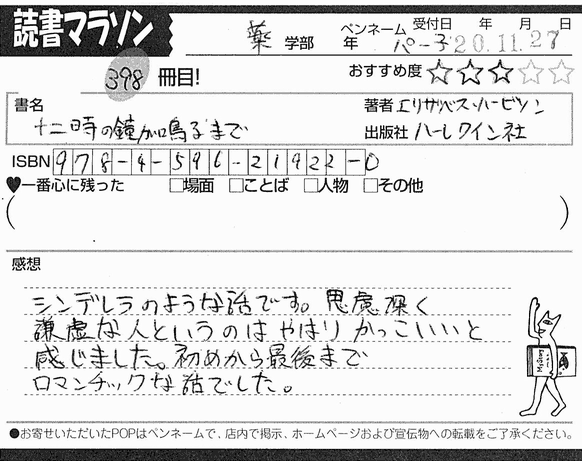 読書マラソン
薬 学部 年 ペンネーム パー子 受付日 年 月 日 20.11.27
398 冊目! おすすめ度 ☆☆☆☆☆
書名 十二時の鐘が鳴るまで
著者 エリザベス・ハービソン
出版社 ハーレクイン社
ISBN 978-4-596-21922-0
♥一番心に残った □場面 □ことば □人物 □その他
( )
感想
シンデレラのような話です。思慮深く
謙虚な人というのはやはりかっこいいと
感じました。初めから最後まで
ロマンチックな話でした。
●お寄せいただいたPOPはペンネームで、店内で掲示、ホームページおよび宣伝物への転載をご了承ください。